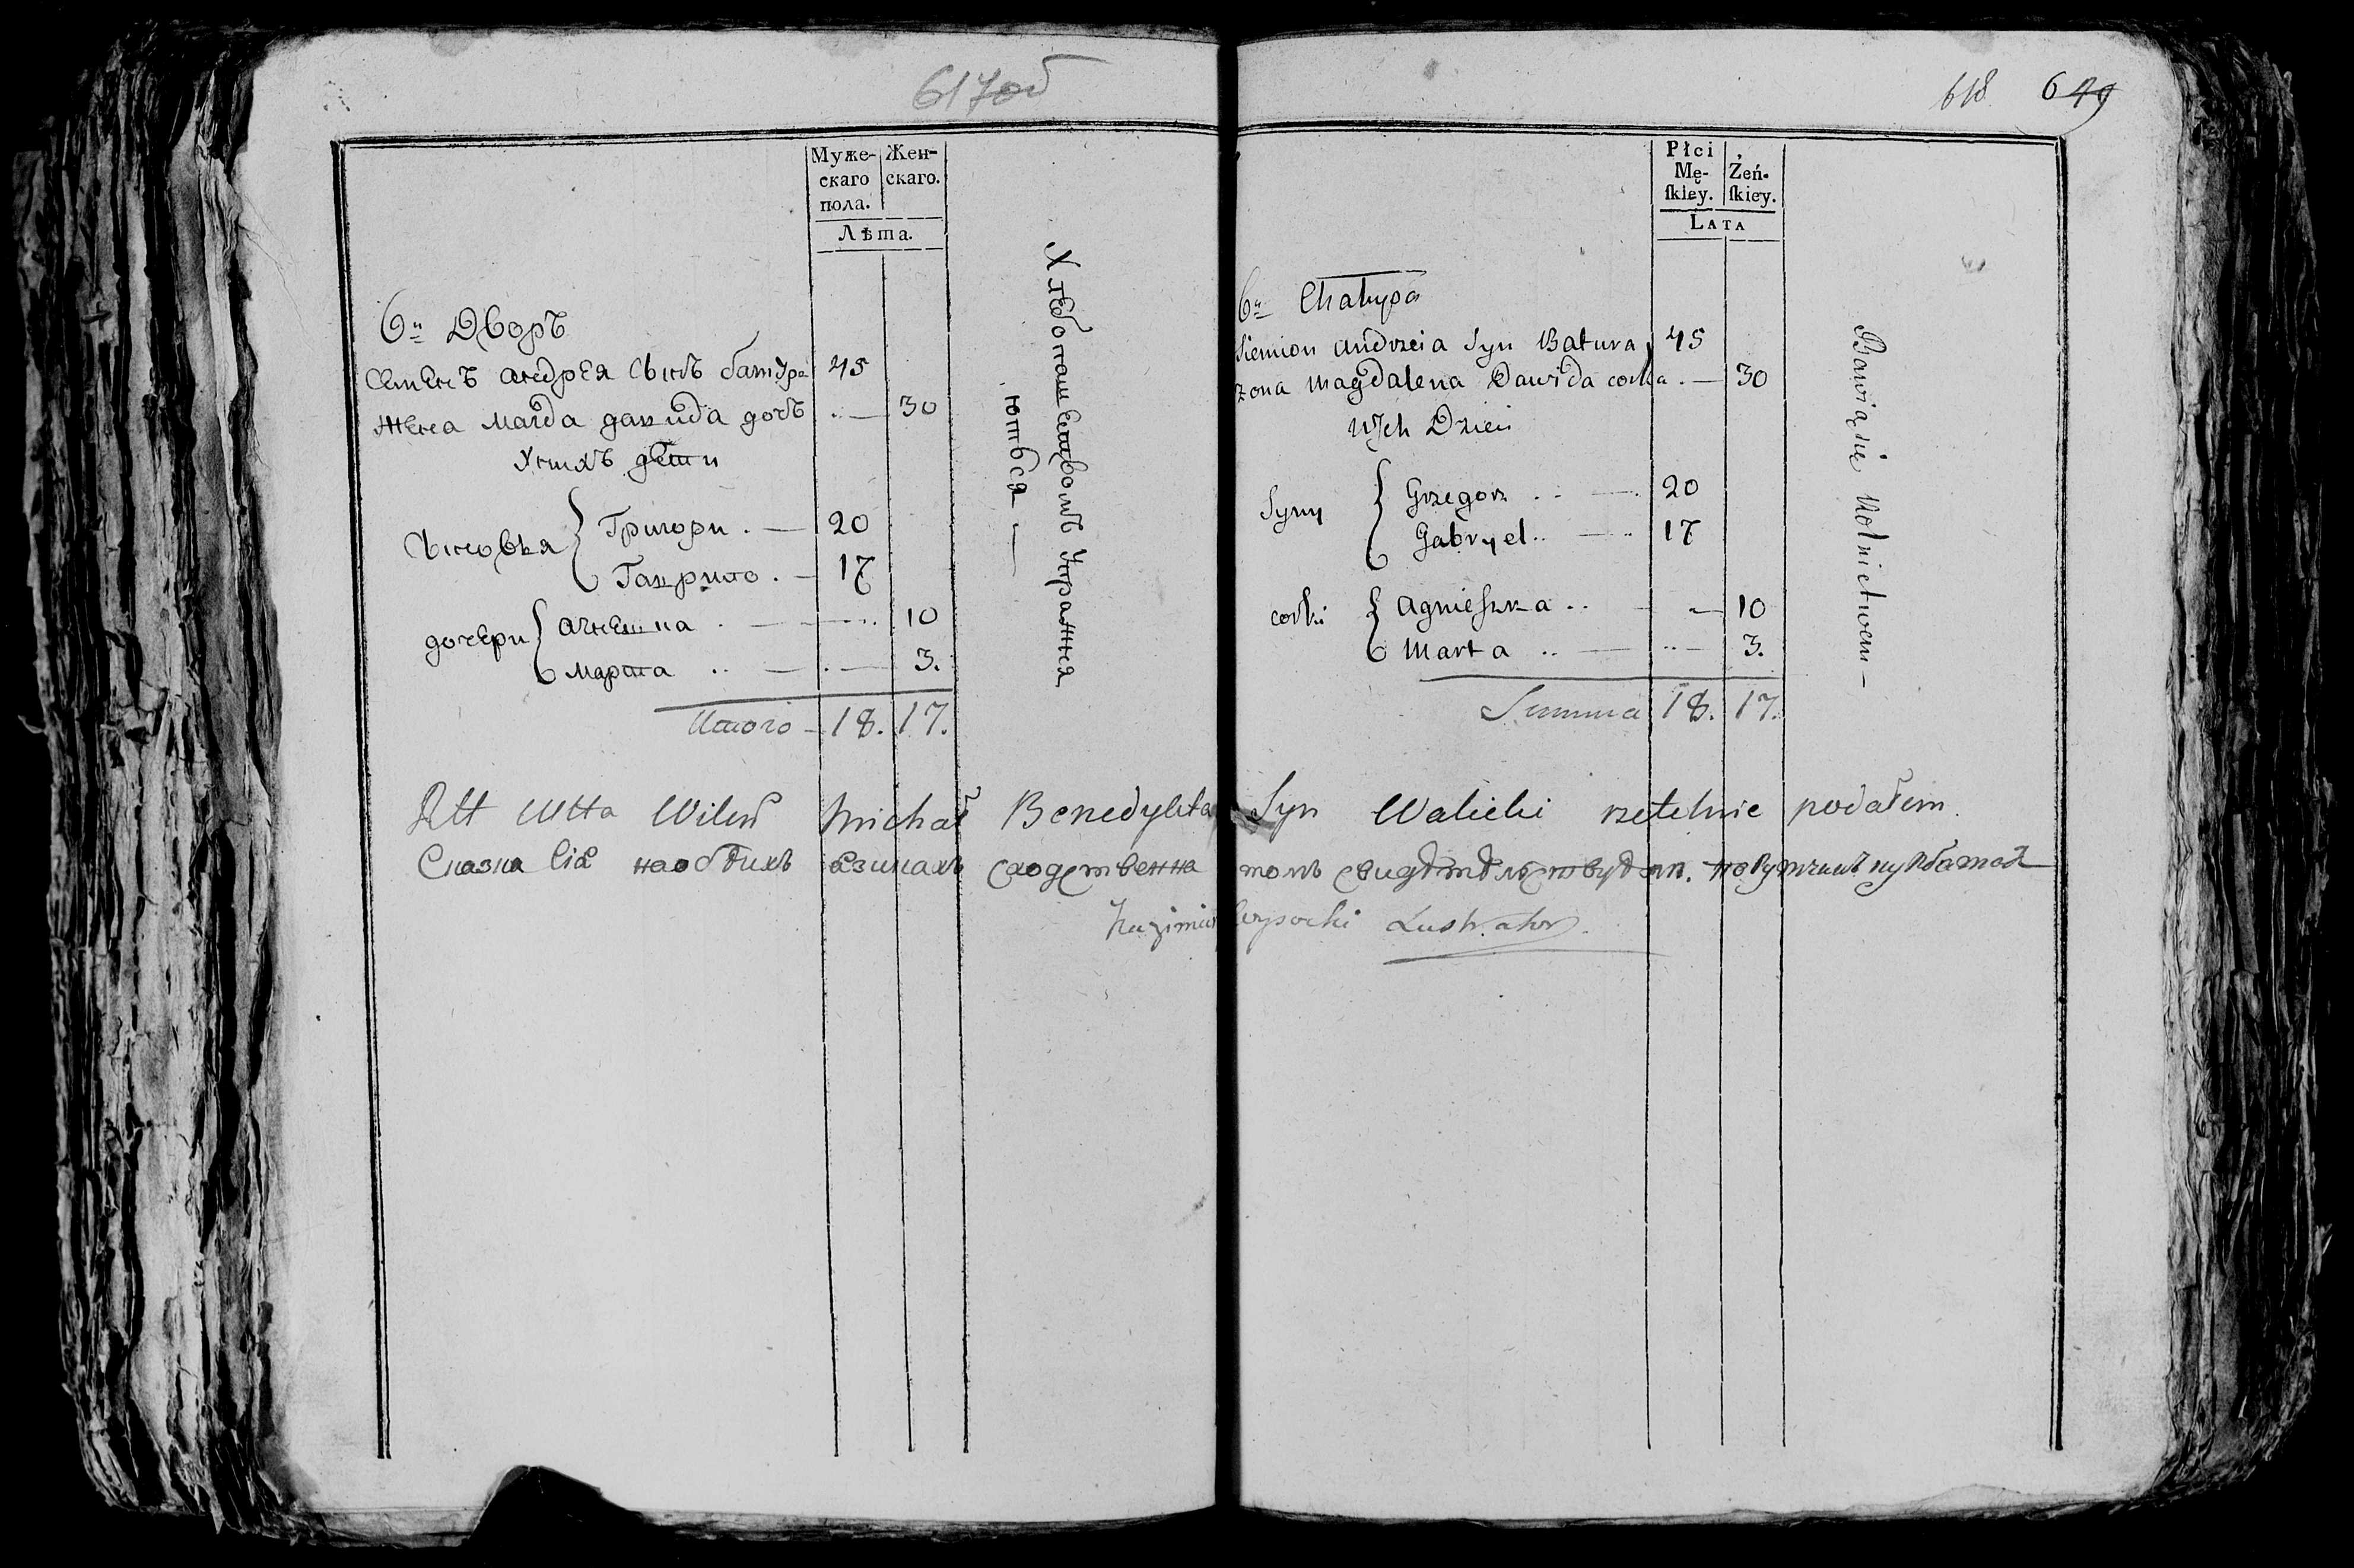 617об
Муже- Жен-
скаго скаго.
пола.
Лѣта.
6й Дворъ
Семенъ андрея сынъ батура 45
жена магда давида дочь . — 30
Унихъ дети
Сыновья { Григори . — 20
Гаврило . — 17
дочери { агнешка . — 10
марта .. — . — 3.
Итого — 18. 17.
Хлебопашевствомъ Упражня
ються —
618 649
Płci Żeń-
Mę- ſkiey.
ſkiey.
LATA
6a Chałupa
Siemion andrzeia Syn Batura 45
żona magdalena Dawida corka . — 30
uIch Dzieci
Syny { Grzegorz .. — 20
Gabryel .. — .. 17
corki { agnieszka .. — 10
marta .. — .. — 3.
Summa 18. 17.
Bawią się Rolnictwem —
Michał Benedykta Syn Walicki rzetelnie podałem.
Сказка сія наобѣихъ языкахъ сходственна томъ свидѣтѣльствуѣтъ.
Kazimierz Wysocki Lustrator.